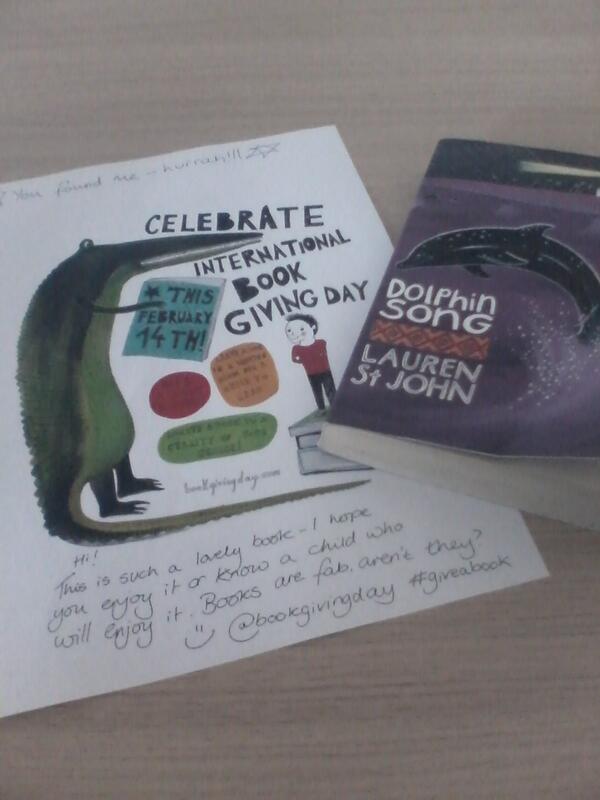 You found me - hurrah!!!
CELEBRATE
INTERNATIONAL
BOOK
GIVING DAY
THIS
FEBRUARY
14TH!
bookgivingday.com
Hi!
This is such a lovely book - I hope
you enjoy it or know a child who
will enjoy it. Books are fab, aren't they?
@bookgivingday #giveabook
DOLPHIN
SONG
LAUREN
St JOHN